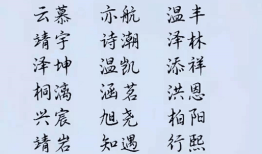 云慕 亦航 温丰
靖宇 诗潮 泽林
泽坤 温凯 添祥
桐漓 涵茗 洪恩
兴宸 旭尧 柏阳
靖岩 知遇 行熙